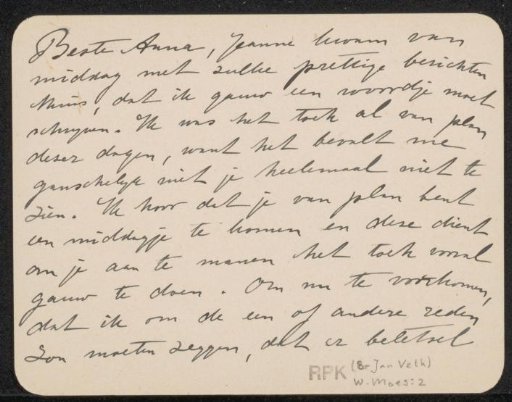 Beste Anna, Jeanne kwam van
middag met zulke prettige berichten
thuis, dat ik gauw een woordje moet
schrijven. Ik was het toch al van plan
dezer dagen, want het bevalt me
ganschelijk niet je heelemaal niet te
zien. Ik hoor dat je van plan bent
een middagje te komen en deze dient
om je aan te manen het toch vooral
gauw te doen. Om nu te voorkomen,
dat ik om de een of andere reden
zou moeten zeggen, dat er beletsel
RPK (Br Jan Veth)
W. Maes: 2